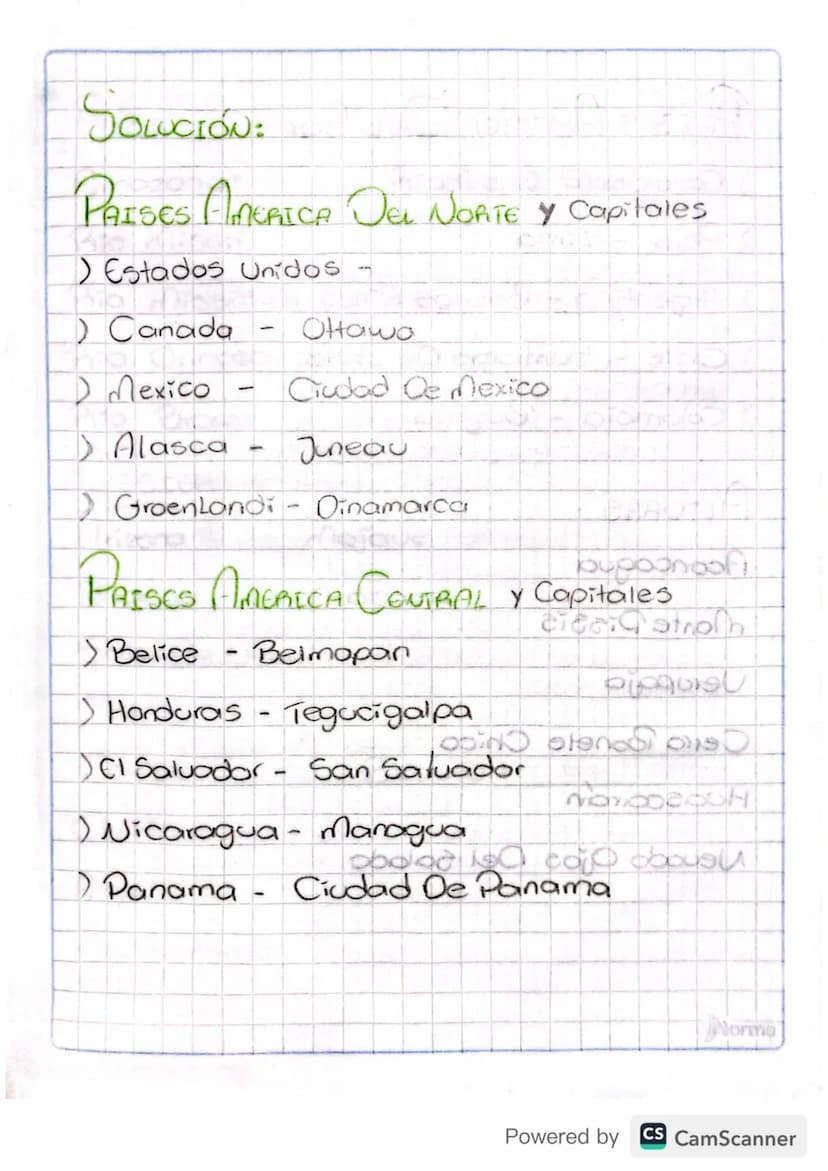 SOLUCIÓN:
PAISES AMERICA DEL NORTE y Capitales
) Estados Unidos -
) Canada - Ottawa
) Mexico - Ciudad De Mexico
) Alasca - Juneau
) Groenlandi - Dinamarca
PAISES AMERICA CENTRAL y Capitales
) Belice - Belmopan
) Honduras - Tegucigalpa
) El Salvador - San Salvador
) Nicaragua - Managua
) Panama - Ciudad De Panama
Norma
Powered by CS CamScanner